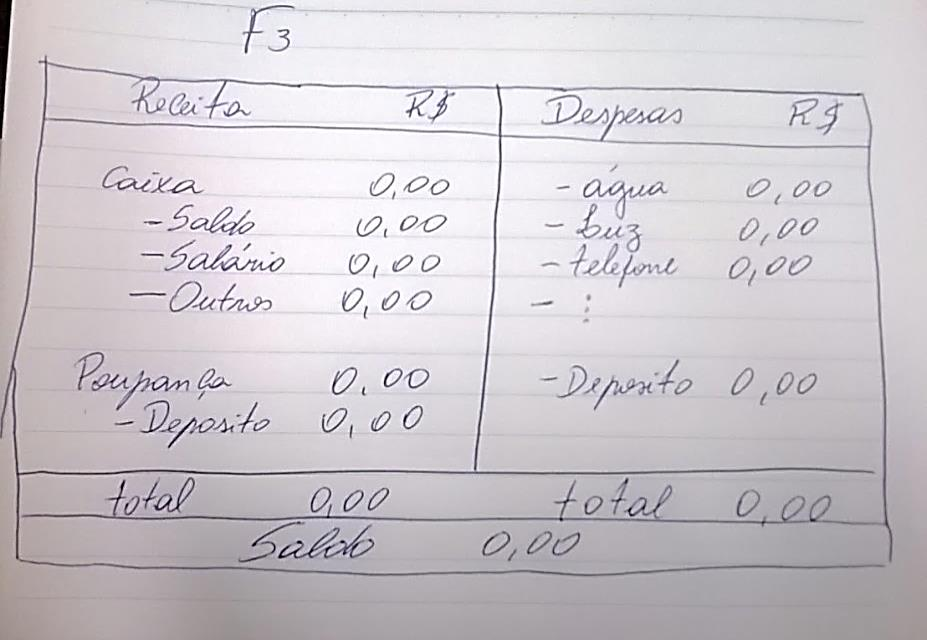 F3
Receita R$ Despesas R$
Caixa 0,00 - água 0,00
- Saldo 0,00 - Luz 0,00
- Salário 0,00 - telefone 0,00
- Outros 0,00 - ⋮
Poupança 0,00 - Deposito 0,00
- Deposito 0,00
total 0,00 total 0,00
Saldo 0,00